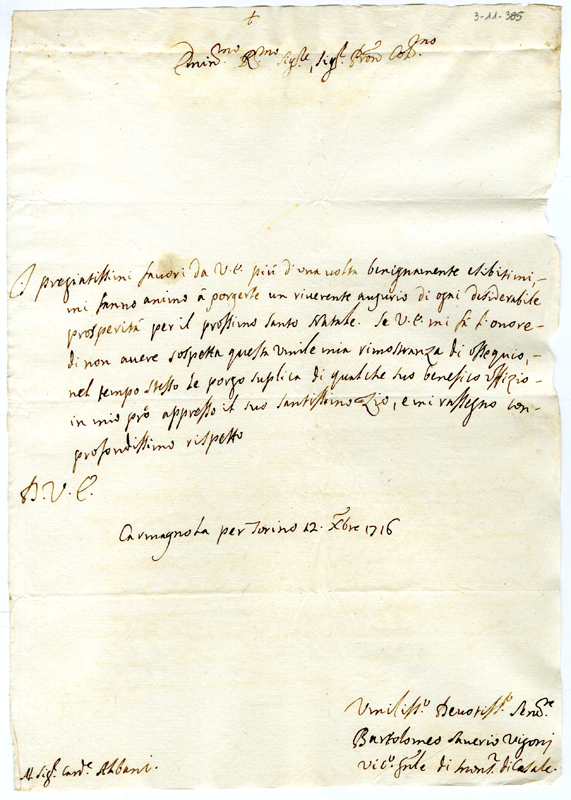 3-11-385
+
Emin.mo R.mo Sig.re, Sig.r Pron Col.mo
I pregiatissimi favori da V.E. più d'una volta benignamente esibitimi,-
mi fanno animo à porgerle un riverente augurio di ogni desiderabile
prosperità per il prossimo santo Natale. Se V.E. mi fà l'onore-
di non avere sospetta questa umile mia rimostranza di ossequio,-
nel tempo stesso le porgo suplica di qualche suo benefico Uffizio-
in mio prò appresso il suo santissimo Zio, e mi rassegno con-
profondissimo rispetto
D. V. E.
Carmagnola per Torino 12. Xbre 1716
Umiliss.o Devotiss.o Serv.re
Bartolomeo Saverio Vigoni
Vic.o Gn̄le di Mons.r di Casale.
Al Sig.r Card.e Albani.